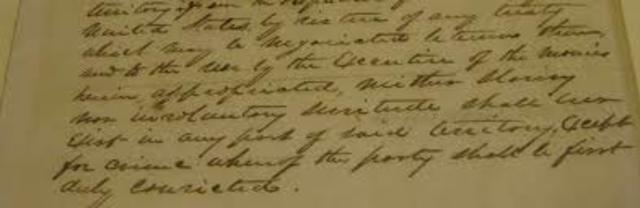 territory from the Republic of
United States by virtue of any treaty
which may be negociated between them
and to the use by the Executive of the monies
herein appropriated, neither slavery
nor involuntary servitude shall ever
exist in any part of said territory, except
for crime whereof the party shall be first
duly convicted.